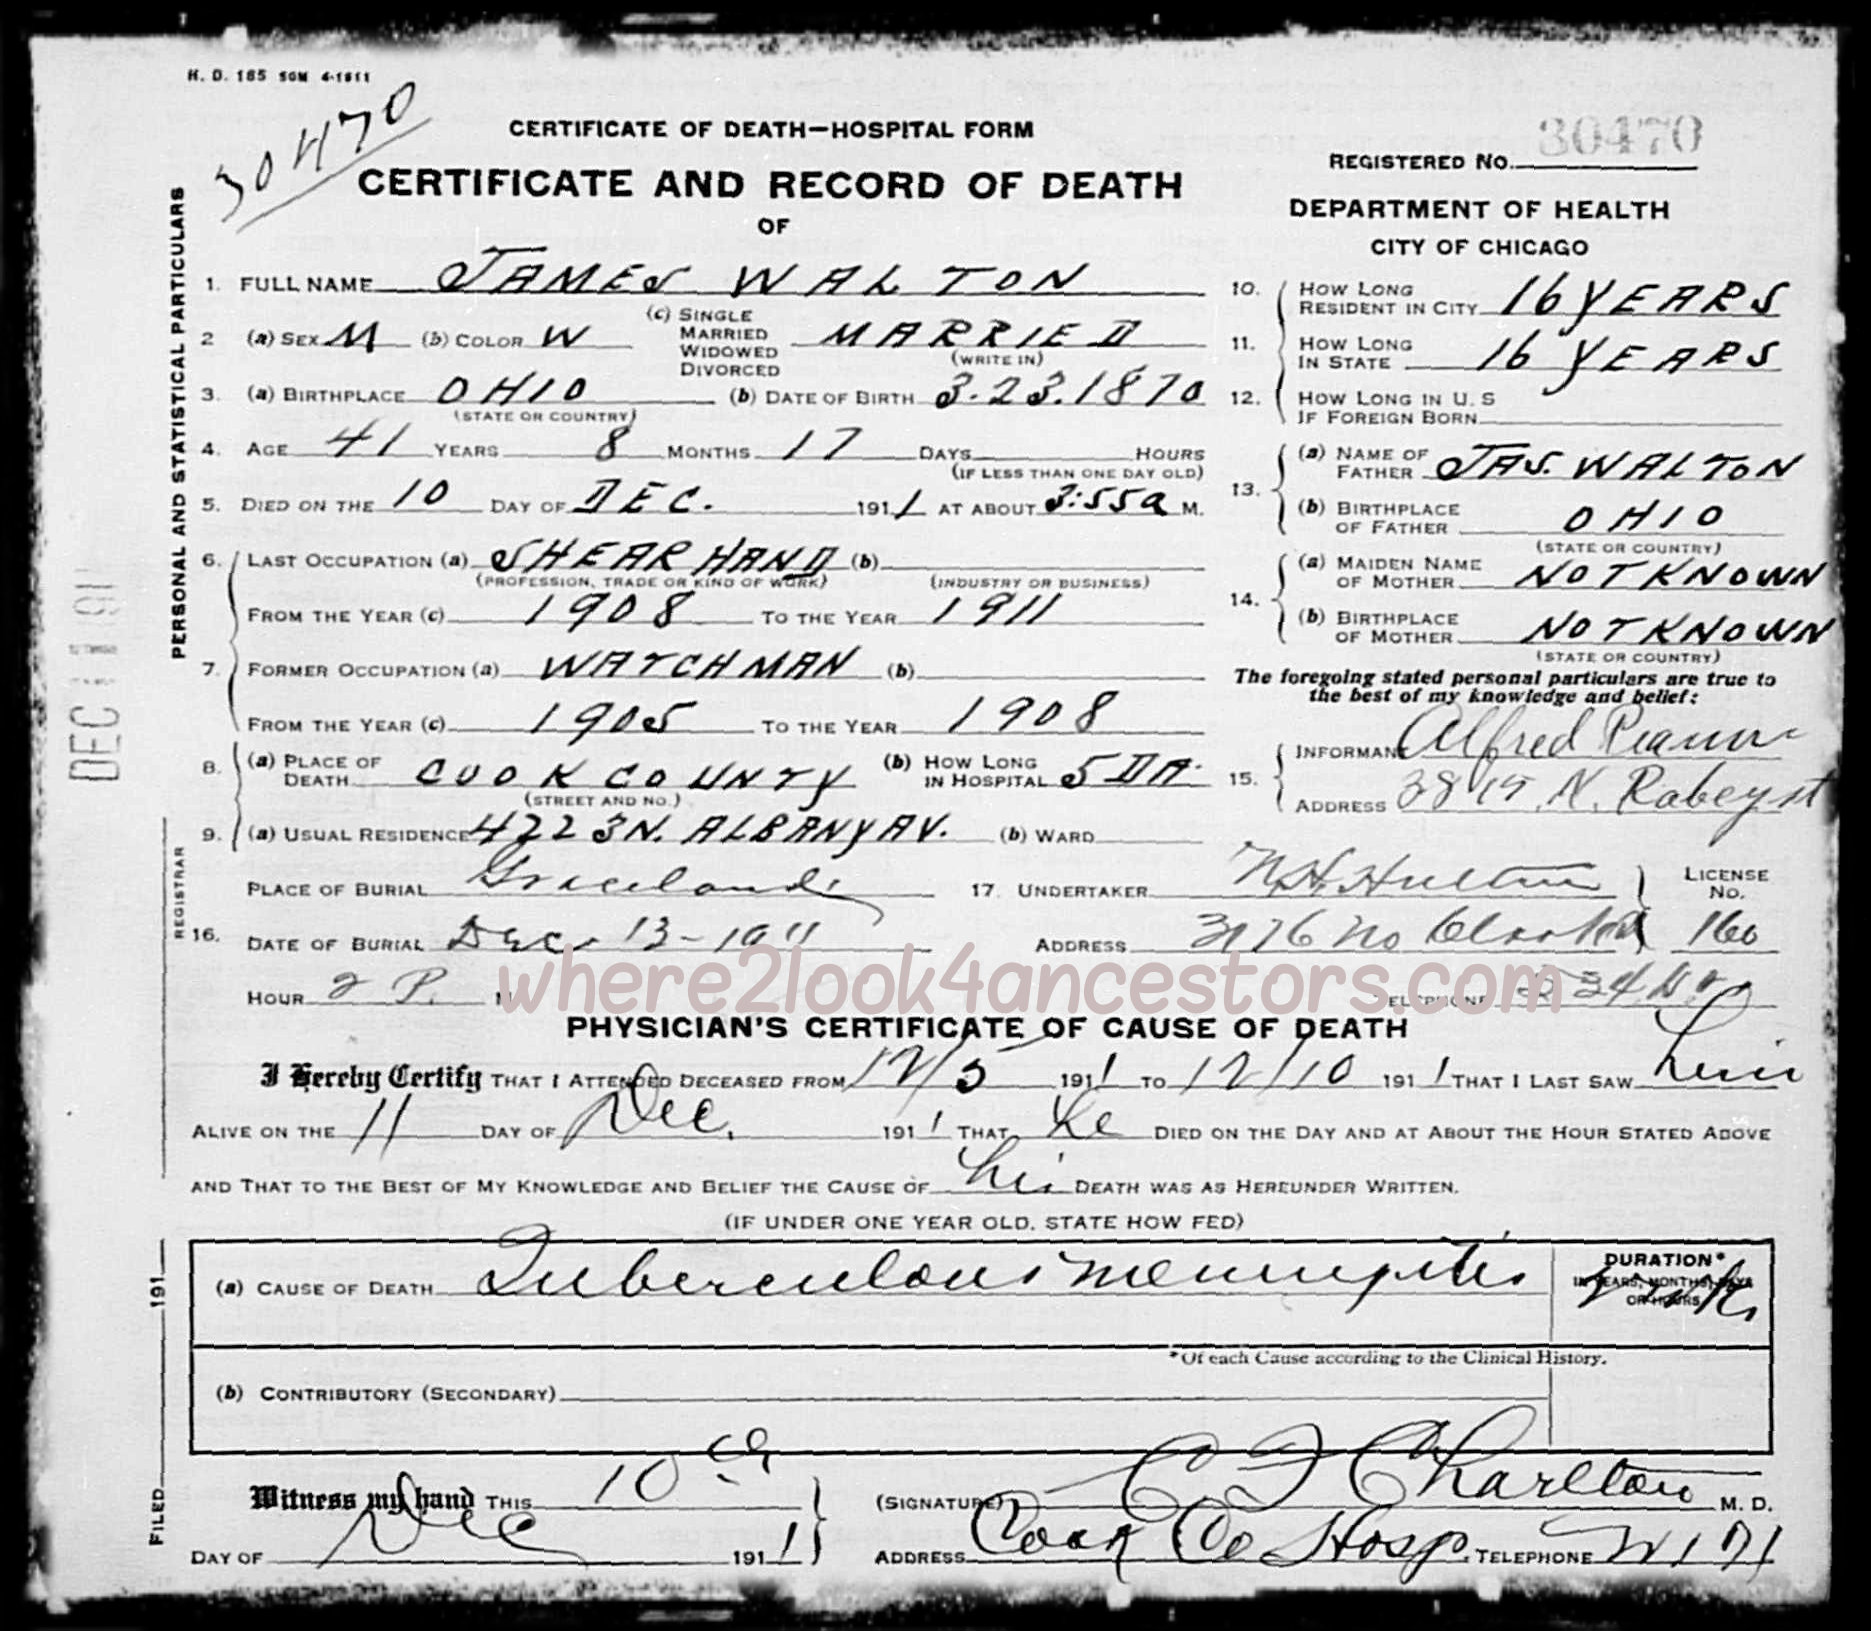 H. D. 185 50M 4-1911
30470
CERTIFICATE OF DEATH—HOSPITAL FORM
30470
REGISTERED NO.
CERTIFICATE AND RECORD OF DEATH
OF
DEPARTMENT OF HEALTH
CITY OF CHICAGO
PERSONAL AND STATISTICAL PARTICULARS
1. FULL NAME JAMES WALTON
2 (a) SEX M (b) COLOR W (c) SINGLE MARRIED WIDOWED DIVORCED MARRIED
(WRITE IN)
3. (a) BIRTHPLACE OHIO (b) DATE OF BIRTH 3.23.1870
(STATE OR COUNTRY)
4. AGE 41 YEARS 8 MONTHS 17 DAYS HOURS
(IF LESS THAN ONE DAY OLD)
5. DIED ON THE 10 DAY OF DEC. 1911 AT ABOUT 3:55 a M.
6. LAST OCCUPATION (a) SHEAR HAND (b)
(PROFESSION, TRADE OR KIND OF WORK) (INDUSTRY OR BUSINESS)
FROM THE YEAR (c) 1908 TO THE YEAR 1911
7. FORMER OCCUPATION (a) WATCHMAN (b)
FROM THE YEAR (c) 1905 TO THE YEAR 1908
8. (a) PLACE OF DEATH COOK COUNTY (b) HOW LONG IN HOSPITAL 5 DA.
(STREET AND NO.)
9. (a) USUAL RESIDENCE 4223 N. ALBANY AV. (b) WARD
10. HOW LONG RESIDENT IN CITY 16 YEARS
11. HOW LONG IN STATE 16 YEARS
12. HOW LONG IN U.S IF FOREIGN BORN
13. (a) NAME OF FATHER JAS. WALTON
(b) BIRTHPLACE OF FATHER OHIO
(STATE OR COUNTRY)
14. (a) MAIDEN NAME OF MOTHER NOT KNOWN
(b) BIRTHPLACE OF MOTHER NOT KNOWN
(STATE OR COUNTRY)
The foregoing stated personal particulars are true to
the best of my knowledge and belief:
15. INFORMANT Alfred
ADDRESS N. Robey st
DEC 11 1911
REGISTRAR
16. PLACE OF BURIAL Graceland
DATE OF BURIAL Dec. 13 - 1911
HOUR 2 P. M
17. UNDERTAKER
LICENSE NO. 160
ADDRESS No
TELEPHONE
where2look4ancestors.com
PHYSICIAN'S CERTIFICATE OF CAUSE OF DEATH
I Hereby Certify THAT I ATTENDED DECEASED FROM 12/5 1911 TO 12/10 1911 THAT I LAST SAW him
ALIVE ON THE 11 DAY OF Dec. 1911 THAT he DIED ON THE DAY AND AT ABOUT THE HOUR STATED ABOVE
AND THAT TO THE BEST OF MY KNOWLEDGE AND BELIEF THE CAUSE OF his DEATH WAS AS HEREUNDER WRITTEN.
(IF UNDER ONE YEAR OLD, STATE HOW FED)
(a) CAUSE OF DEATH Tuberculous meningitis
DURATION*
IN YEARS, MONTHS, DAYS
OR HOURS
*Of each Cause according to the Clinical History.
(b) CONTRIBUTORY (SECONDARY)
FILED 191
Witness my hand THIS 10th
DAY OF Dec 1911
(SIGNATURE) Charlton M. D.
ADDRESS Cook Co Hosp. TELEPHONE